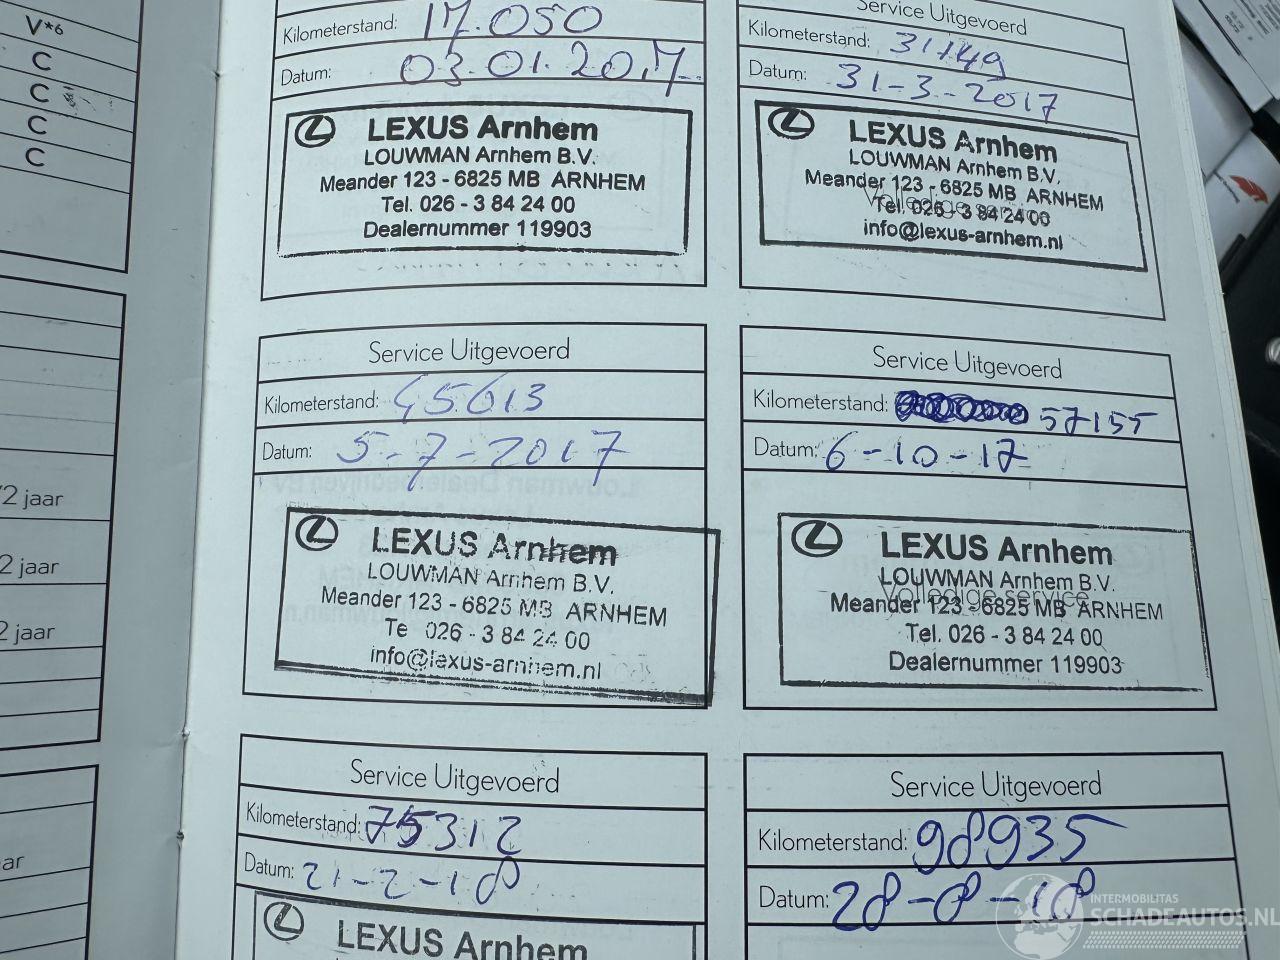 V*6
C
C
C
C
2 jaar
2 jaar
2 jaar
ar
Kilometerstand: 17.050
Datum: 03.01.2017
LEXUS Arnhem
LOUWMAN Arnhem B.V.
Meander 123 - 6825 MB ARNHEM
Tel. 026 - 3 84 24 00
Dealernummer 119903
Service Uitgevoerd
Kilometerstand: 31149
Datum: 31-3-2017
LEXUS Arnhem
LOUWMAN Arnhem B.V.
Meander 123 - 6825 MB ARNHEM
Volledige service
Tel. 026 - 3 84 24 00
info@lexus-arnhem.nl
Service Uitgevoerd
Kilometerstand: 45613
Datum: 5-7-2017
LEXUS Arnhem
LOUWMAN Arnhem B.V.
Meander 123 - 6825 MB ARNHEM
Te 026 - 3 84 24 00
info@lexus-arnhem.nl
Service Uitgevoerd
Kilometerstand: 57155
Datum: 6-10-17
LEXUS Arnhem
LOUWMAN Arnhem B.V.
Volledige service
Meander 123 - 6825 MB ARNHEM
Tel. 026 - 3 84 24 00
Dealernummer 119903
Service Uitgevoerd
Kilometerstand: 75312
Datum: 21-2-18
LEXUS Arnhem
Service Uitgevoerd
Kilometerstand: 98935
Datum: 28-8-18
INTERMOBILITAS
SCHADEAUTOS.NL